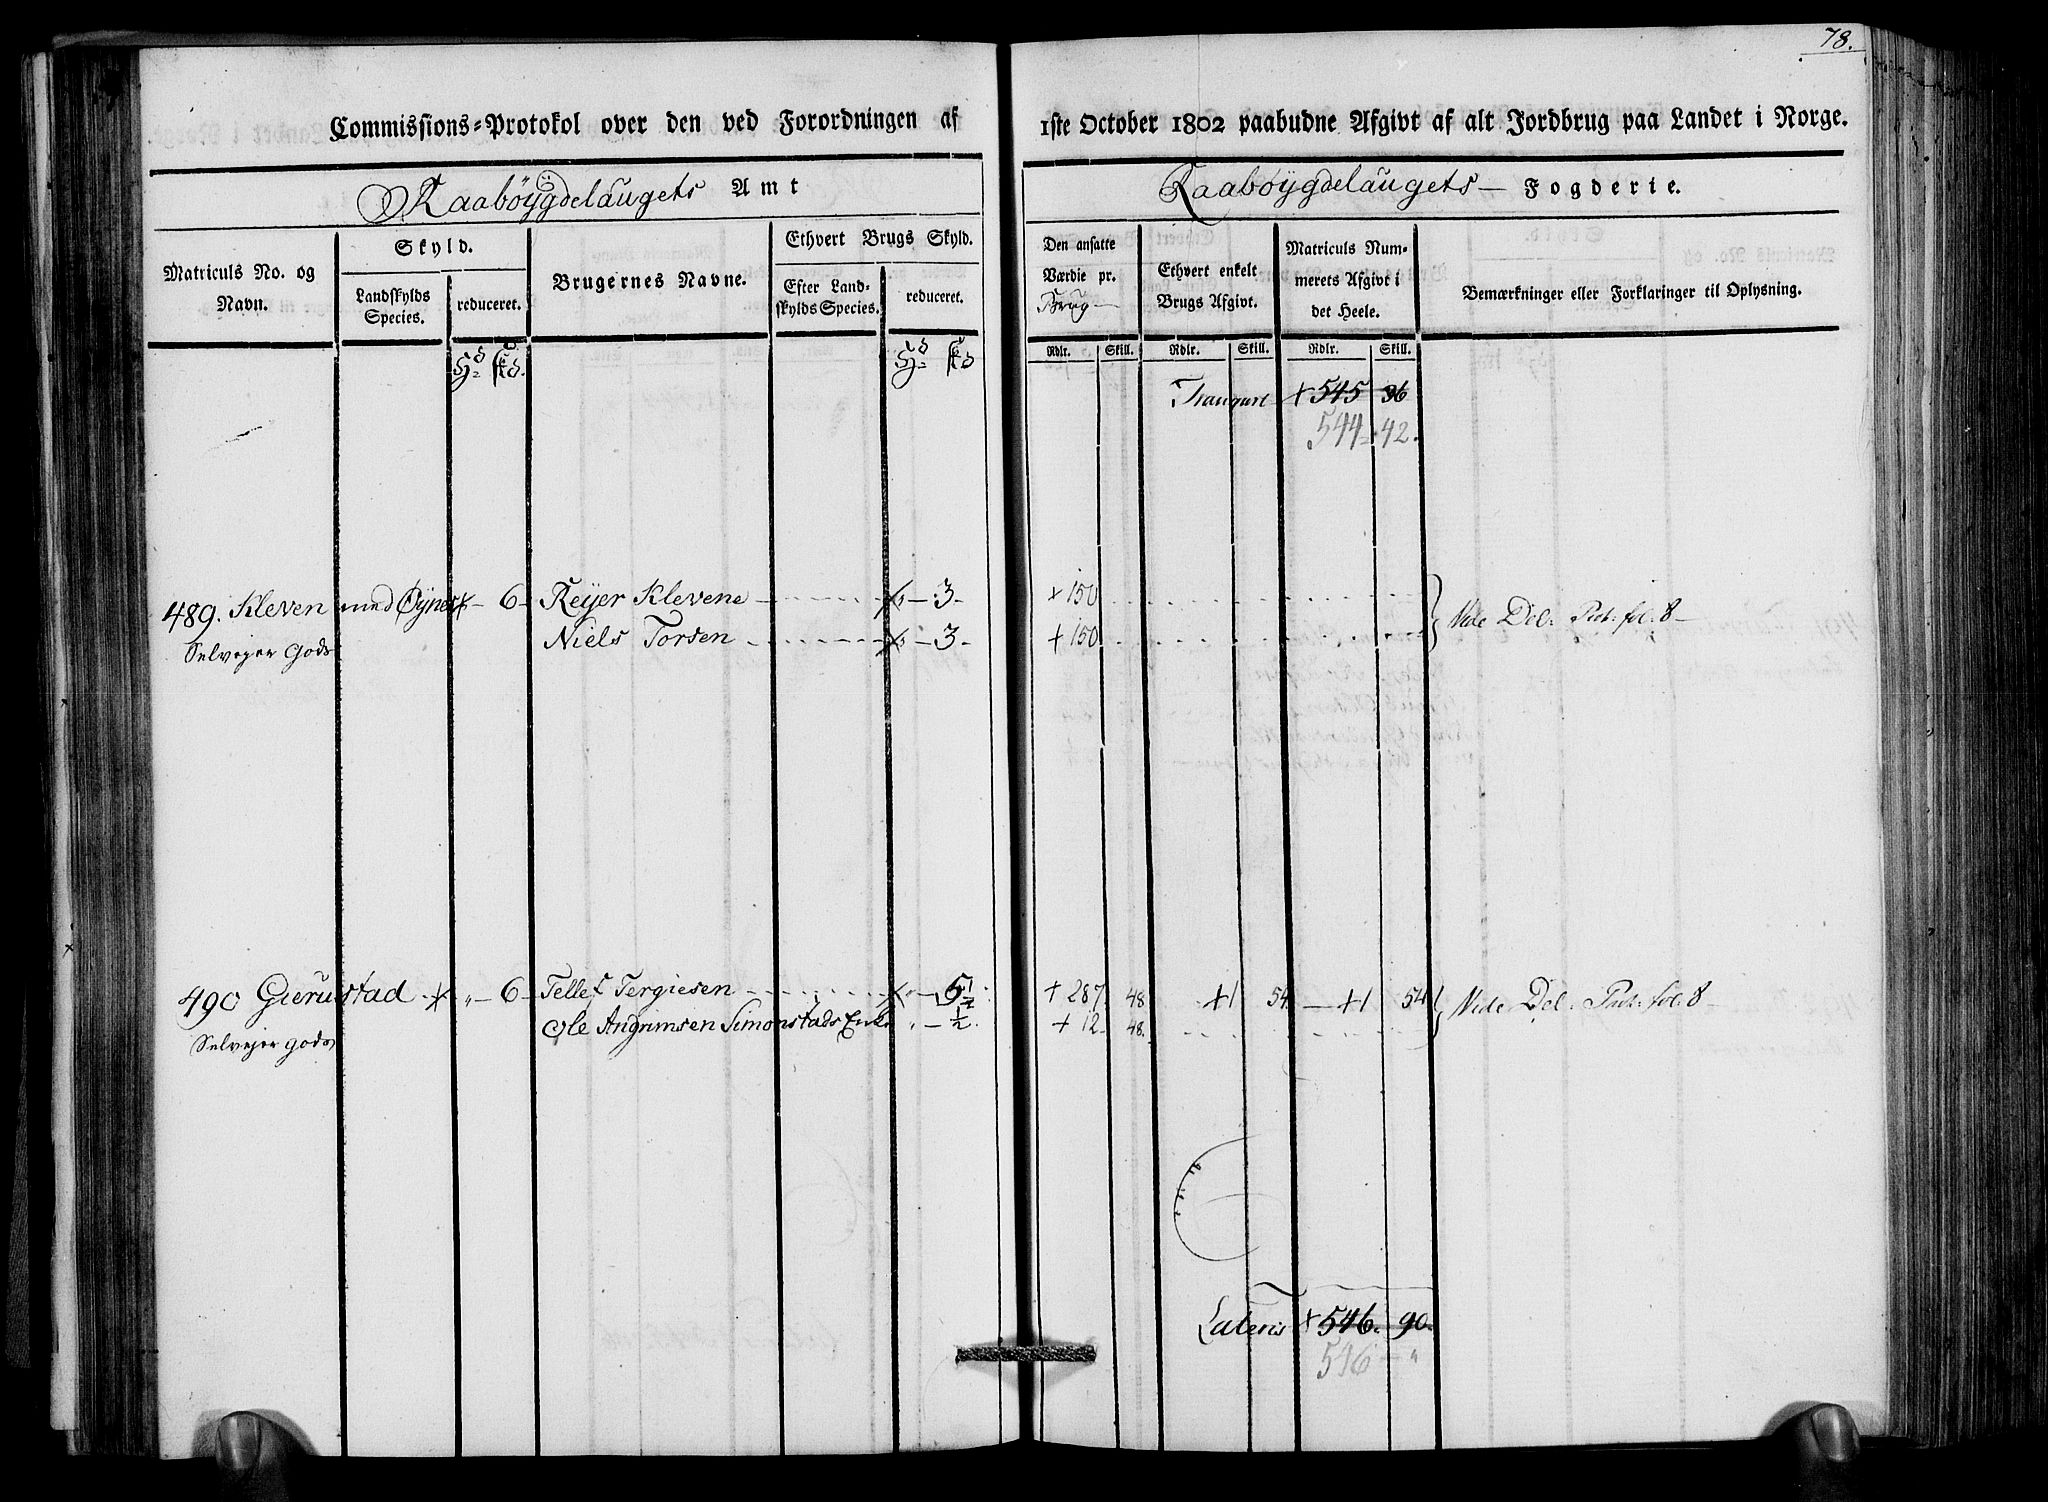 78.
Commissions-Protokol over den ved Forordningen af 1ste October 1802 paabudne Afgivt af alt Jordbrug paa Landet i Norge.
Raabøygdelaugets Amt
Raabøygdelaugets Fogderie.
Matriculs No. og Navn.
Skyld.
Landskylds Species.
reduceret.
Brugernes Navne.
Ethvert Brugs Skyld.
Efter Landskylds Species.
reduceret.
Den ansatte Værdie pr. Brug
Ethvert enkelt Brugs Afgivt.
Matriculs Nummerets Afgivt i det Heele.
Bemærkninger eller Forklaringer til Oplysning.
Rdlr. Skill. Rdlr. Skill. Rdlr. Skill.
Transport + 545 36
544 42.
489. Kleven med Øynes - 6 - Reyer Klevene - 3 - + 150 Vide Del: Prot: fol: 8 -
Selvejer Gods Niels Torsen - 3 - + 150
490 Gierustad " - 6 - Tellef Tergiesen " - 5 1/2 + 287 48 +1 54 - +1 54 Vide Del: Prot: fol: 8 -
Ole Angrimsen Simonstads Enke " - 1/2. + 12 48.
Selvejer gods
Lateris + 546. 90.
546 - "